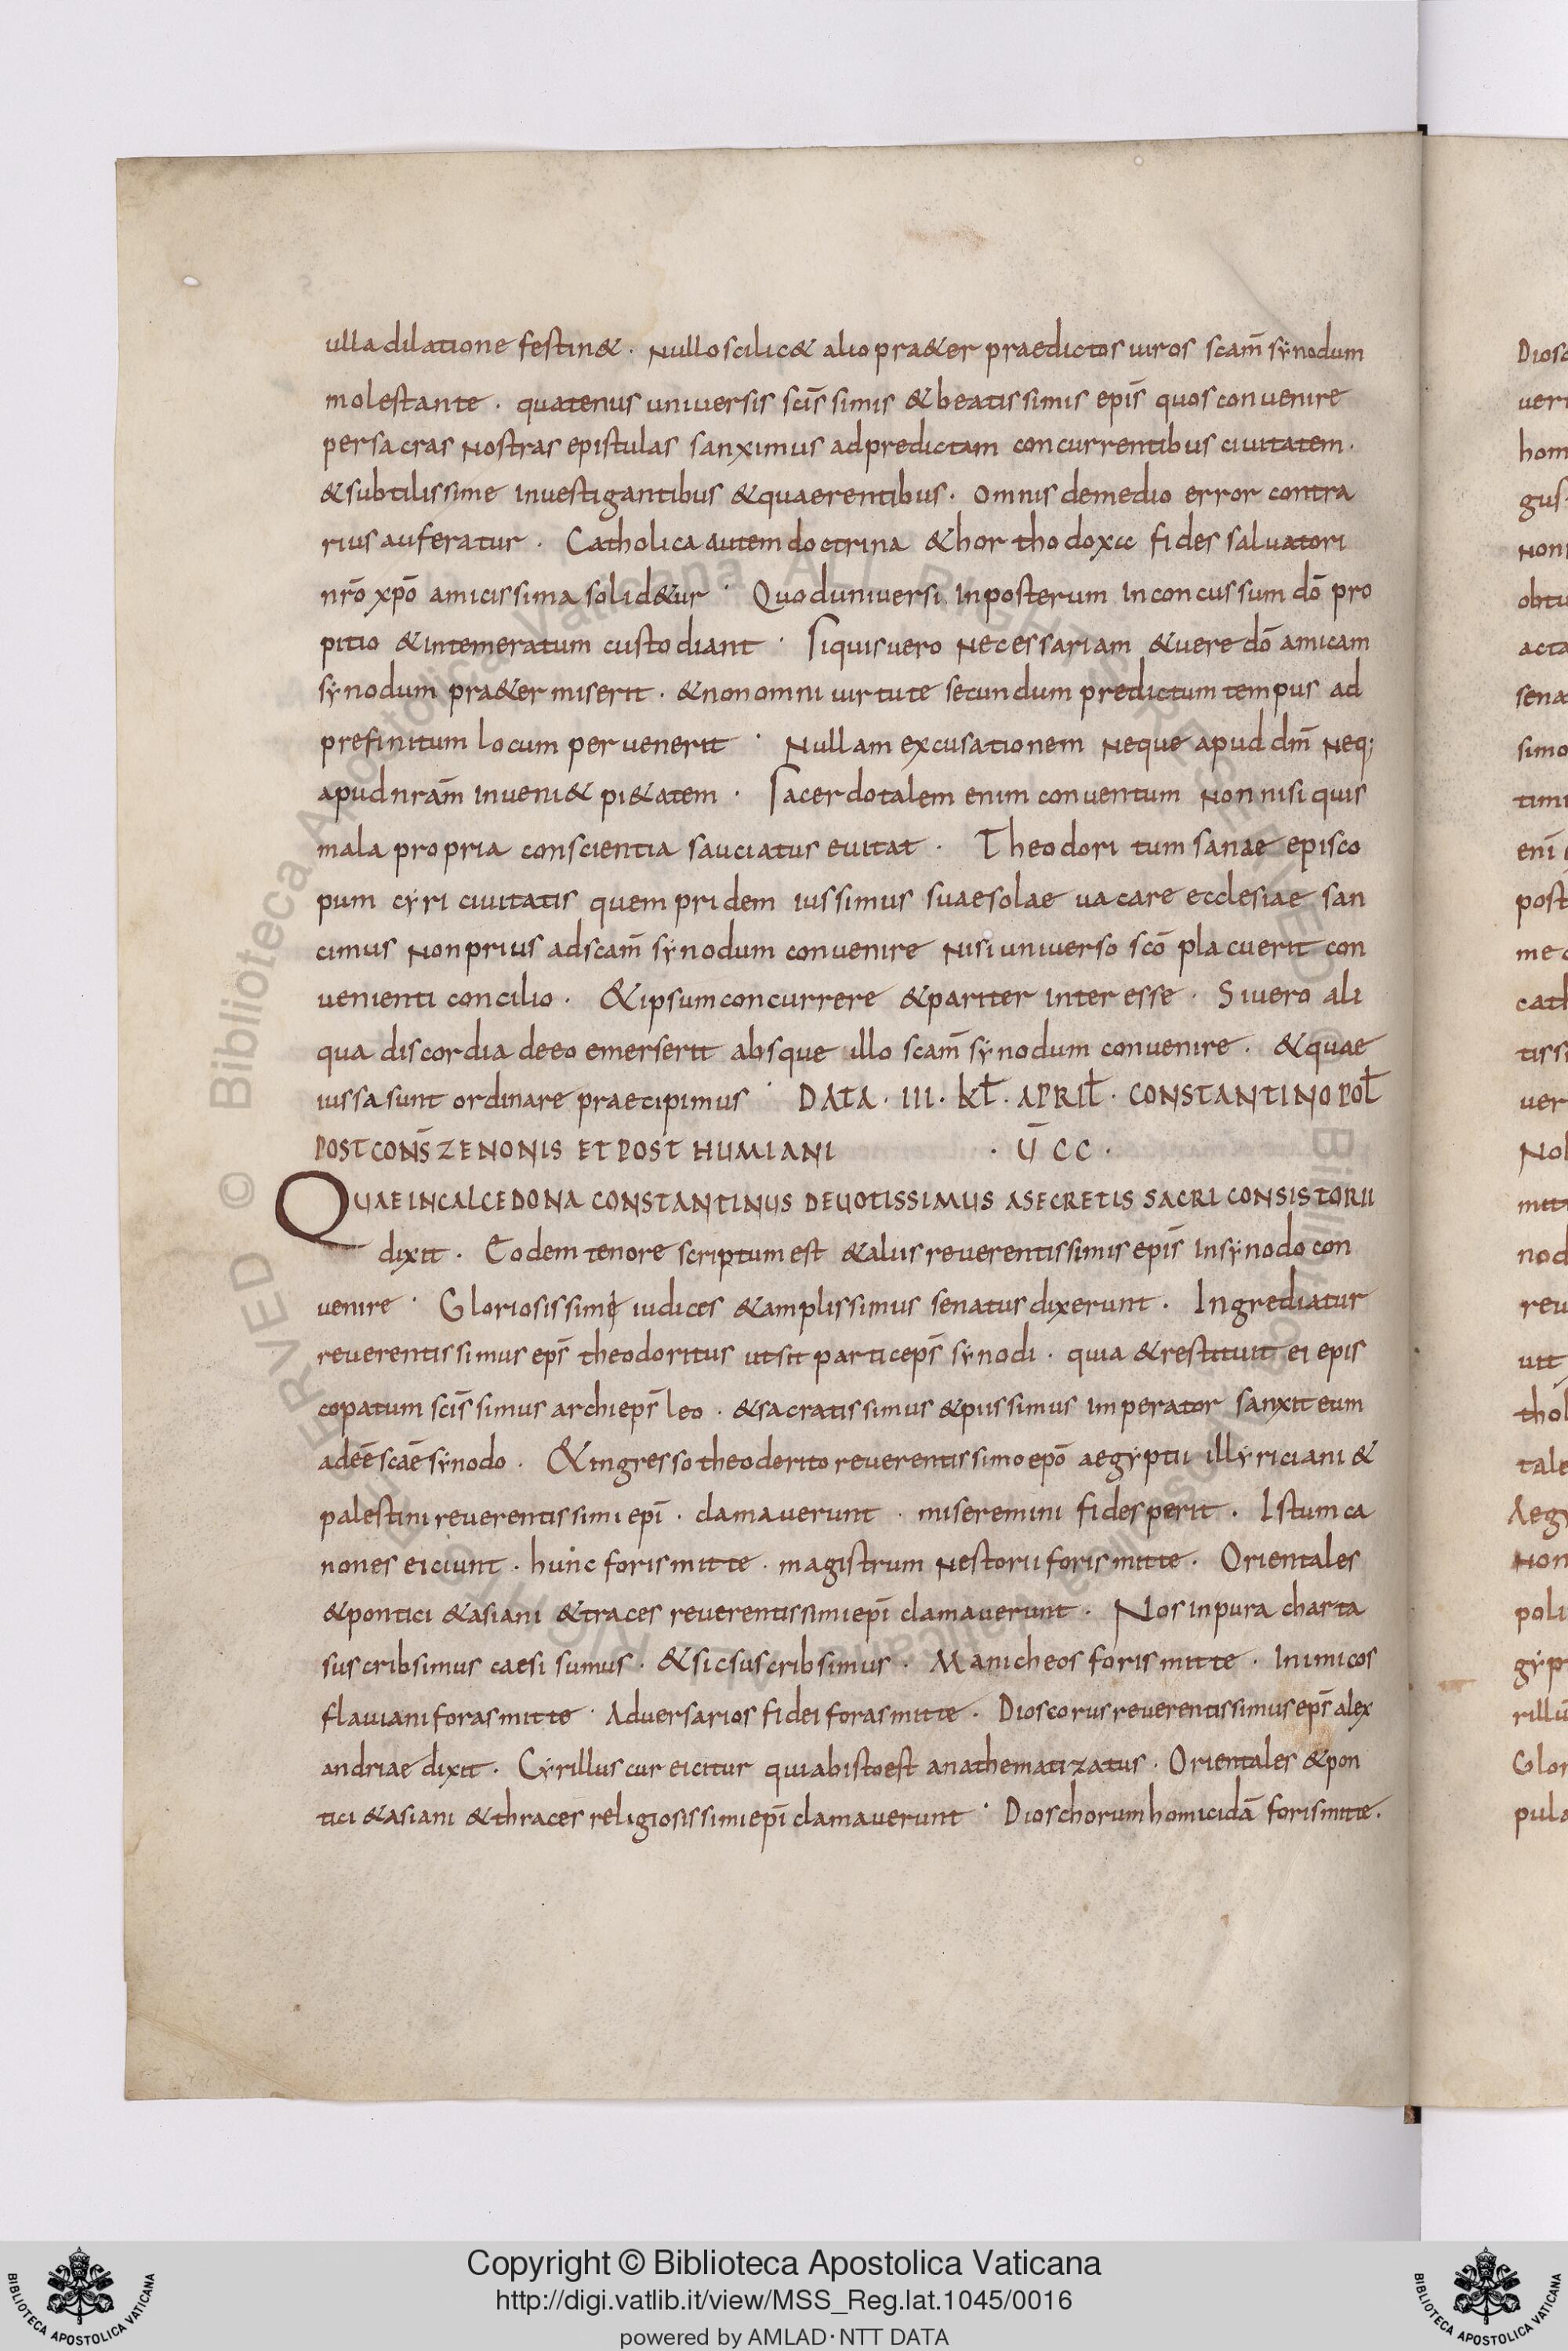 ulla dilatione festin& . Nullo scilic& alio pra&er praedictos uiros scam̄ sẏnodum
molestante . quatenus uniuersis scis̄simis & beatissimis epis̄ quos conuenire
per sacras nostras epistulas sanximus ad predictam concurrentibus ciuitatem .
& subtilissime inuestigantibus & quaerentibus . omnis de medio error contra
rius auferatur . Catholica autem doctrina & horthodoxa fides saluatori
nr̄o xp̄o amicissima solid&ur . Quod uniuersi in posterum inconcussum dō pro
pitio & intemeratum custodiant . Siquis uero necessariam & uere dō amicam
sẏnodum pra&ermiserit . & non omni uirtute secundum predictum tempus ad
prefinitum locum peruenerit . Nullam excusationem neque apud dm̄ neq;
apud nrām inueni& pi&atem . Sacerdotalem enim conuentum non nisi quis
mala propria conscientia sauciatus euitat . Theodoritum sanae episco
pum cẏri ciuitatis quem pridem iussimus suae solae uacare ecclesiae san
cimus non prius ad scam̄ sẏnodum conuenire nisi uniuerso scō placuerit con
uenienti concilio . & ipsum concurrere & pariter interesse . Si uero ali
qua discordia de eo emerserit absque illo scam̄ sẏnodum conuenire . & quae
iussa sunt ordinare praecipimus . DATA . III . KL̄ . APRIL̄ . CONSTANTINOPOL̄
POST CONS̄ ZENONIS ET POSTHUMIANI . Ū CC .
QUAE IN CALCEDONA CONSTANTINUS DEUOTISSIMUS A SECRETIS SACRI CONSISTORII
dixit . Eodem tenore scriptum est & aliis reuerentissimis epis̄ in sẏnodo con
uenire . Gloriosissimi iudices & amplissimus senatus dixerunt . Ingrediatur
reuerentissimus eps̄ theodoritus ut sit particeps̄ sẏnodi . quia & restituit ei epis
copatum scis̄simus archieps̄ leo . & sacratissimus & piissimus imperator sanxit eum
adeē scāe sẏnodo . & ingresso theoderito reuerentissimo epō aegẏptii illẏriciani &
palestini reuerentissimi epī . clamauerunt . miseremini fides perit . Istum ca
nones eiciunt . hunc foris mitte . magistrum nestorii foris mitte . Orientales
& pontici & asiani & traces reuerentissimi epī clamauerunt . Nos in pura charta
suscribsimus caesi sumus . & sic suscribsimus . Manicheos foris mitte . Inimicos
flauiani foras mitte . Aduersarios fidei foras mitte . Dioscorus reuerentissimus eps̄ alex
andriae dixit . Cẏrillus cur eicitur qui ab isto est anathematizatus . Orientales & pon
tici & asiani & thraces religiosissimi epī clamauerunt . Dioschorum homicidā foris mitte .
Copyright © Biblioteca Apostolica Vaticana
http://digi.vatlib.it/view/MSS_Reg.lat.1045/0016
powered by AMLAD·NTT DATA